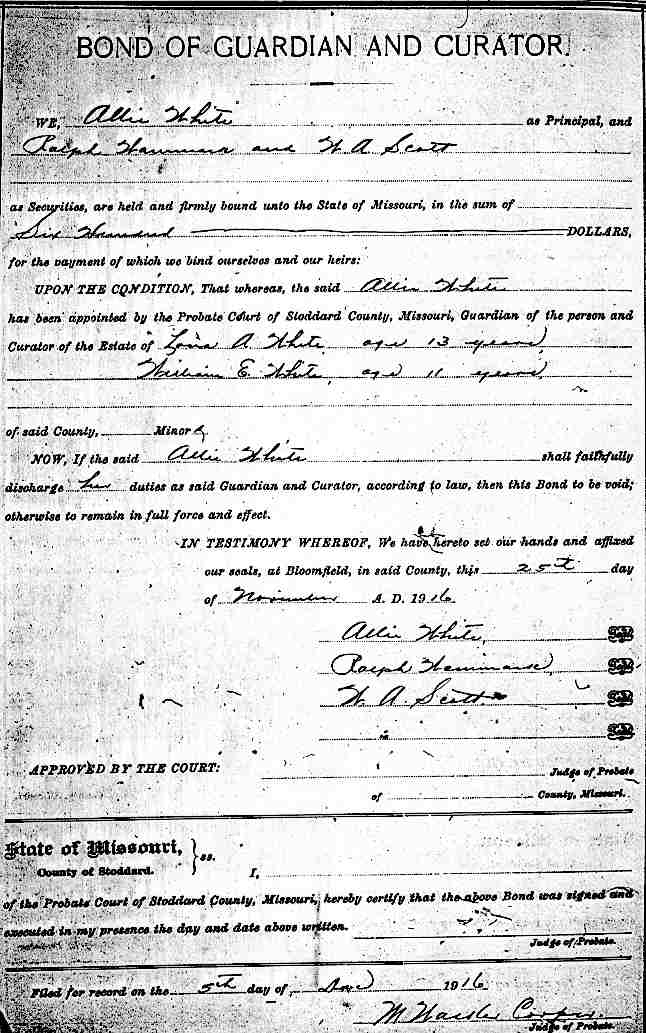 BOND OF GUARDIAN AND CURATOR.
WE, Allie White as Principal, and
Ralph and W. A. Scott
as Securities, are held and firmly bound unto the State of Missouri, in the sum of
Six Hundred DOLLARS,
for the payment of which we bind ourselves and our heirs:
UPON THE CONDITION, That whereas, the said Allie White
has been appointed by the Probate Court of Stoddard County, Missouri, Guardian of the person and
Curator of the Estate of A. White, age 13 years
William E. White, age 11 years
of said County, Minors
NOW, If the said Allie White shall faithfully
discharge her duties as said Guardian and Curator, according to law, then this Bond to be void;
otherwise to remain in full force and effect.
IN TESTIMONY WHEREOF, We have hereto set our hands and affixed
our seals, at Bloomfield, in said County, this 25th day
of November A. D. 1916
Allie White, Seal
Ralph Seal
W. A. Scott Seal
Seal
APPROVED BY THE COURT:
Judge of Probate
of County, Missouri.
State of Missouri,
County of Stoddard. } ss. I,
of the Probate Court of Stoddard County, Missouri, hereby certify that the above Bond was signed and
executed in my presence the day and date above written.
Judge of Probate.
Filed for record on the 5th day of 1916
M.
Judge of Probate.